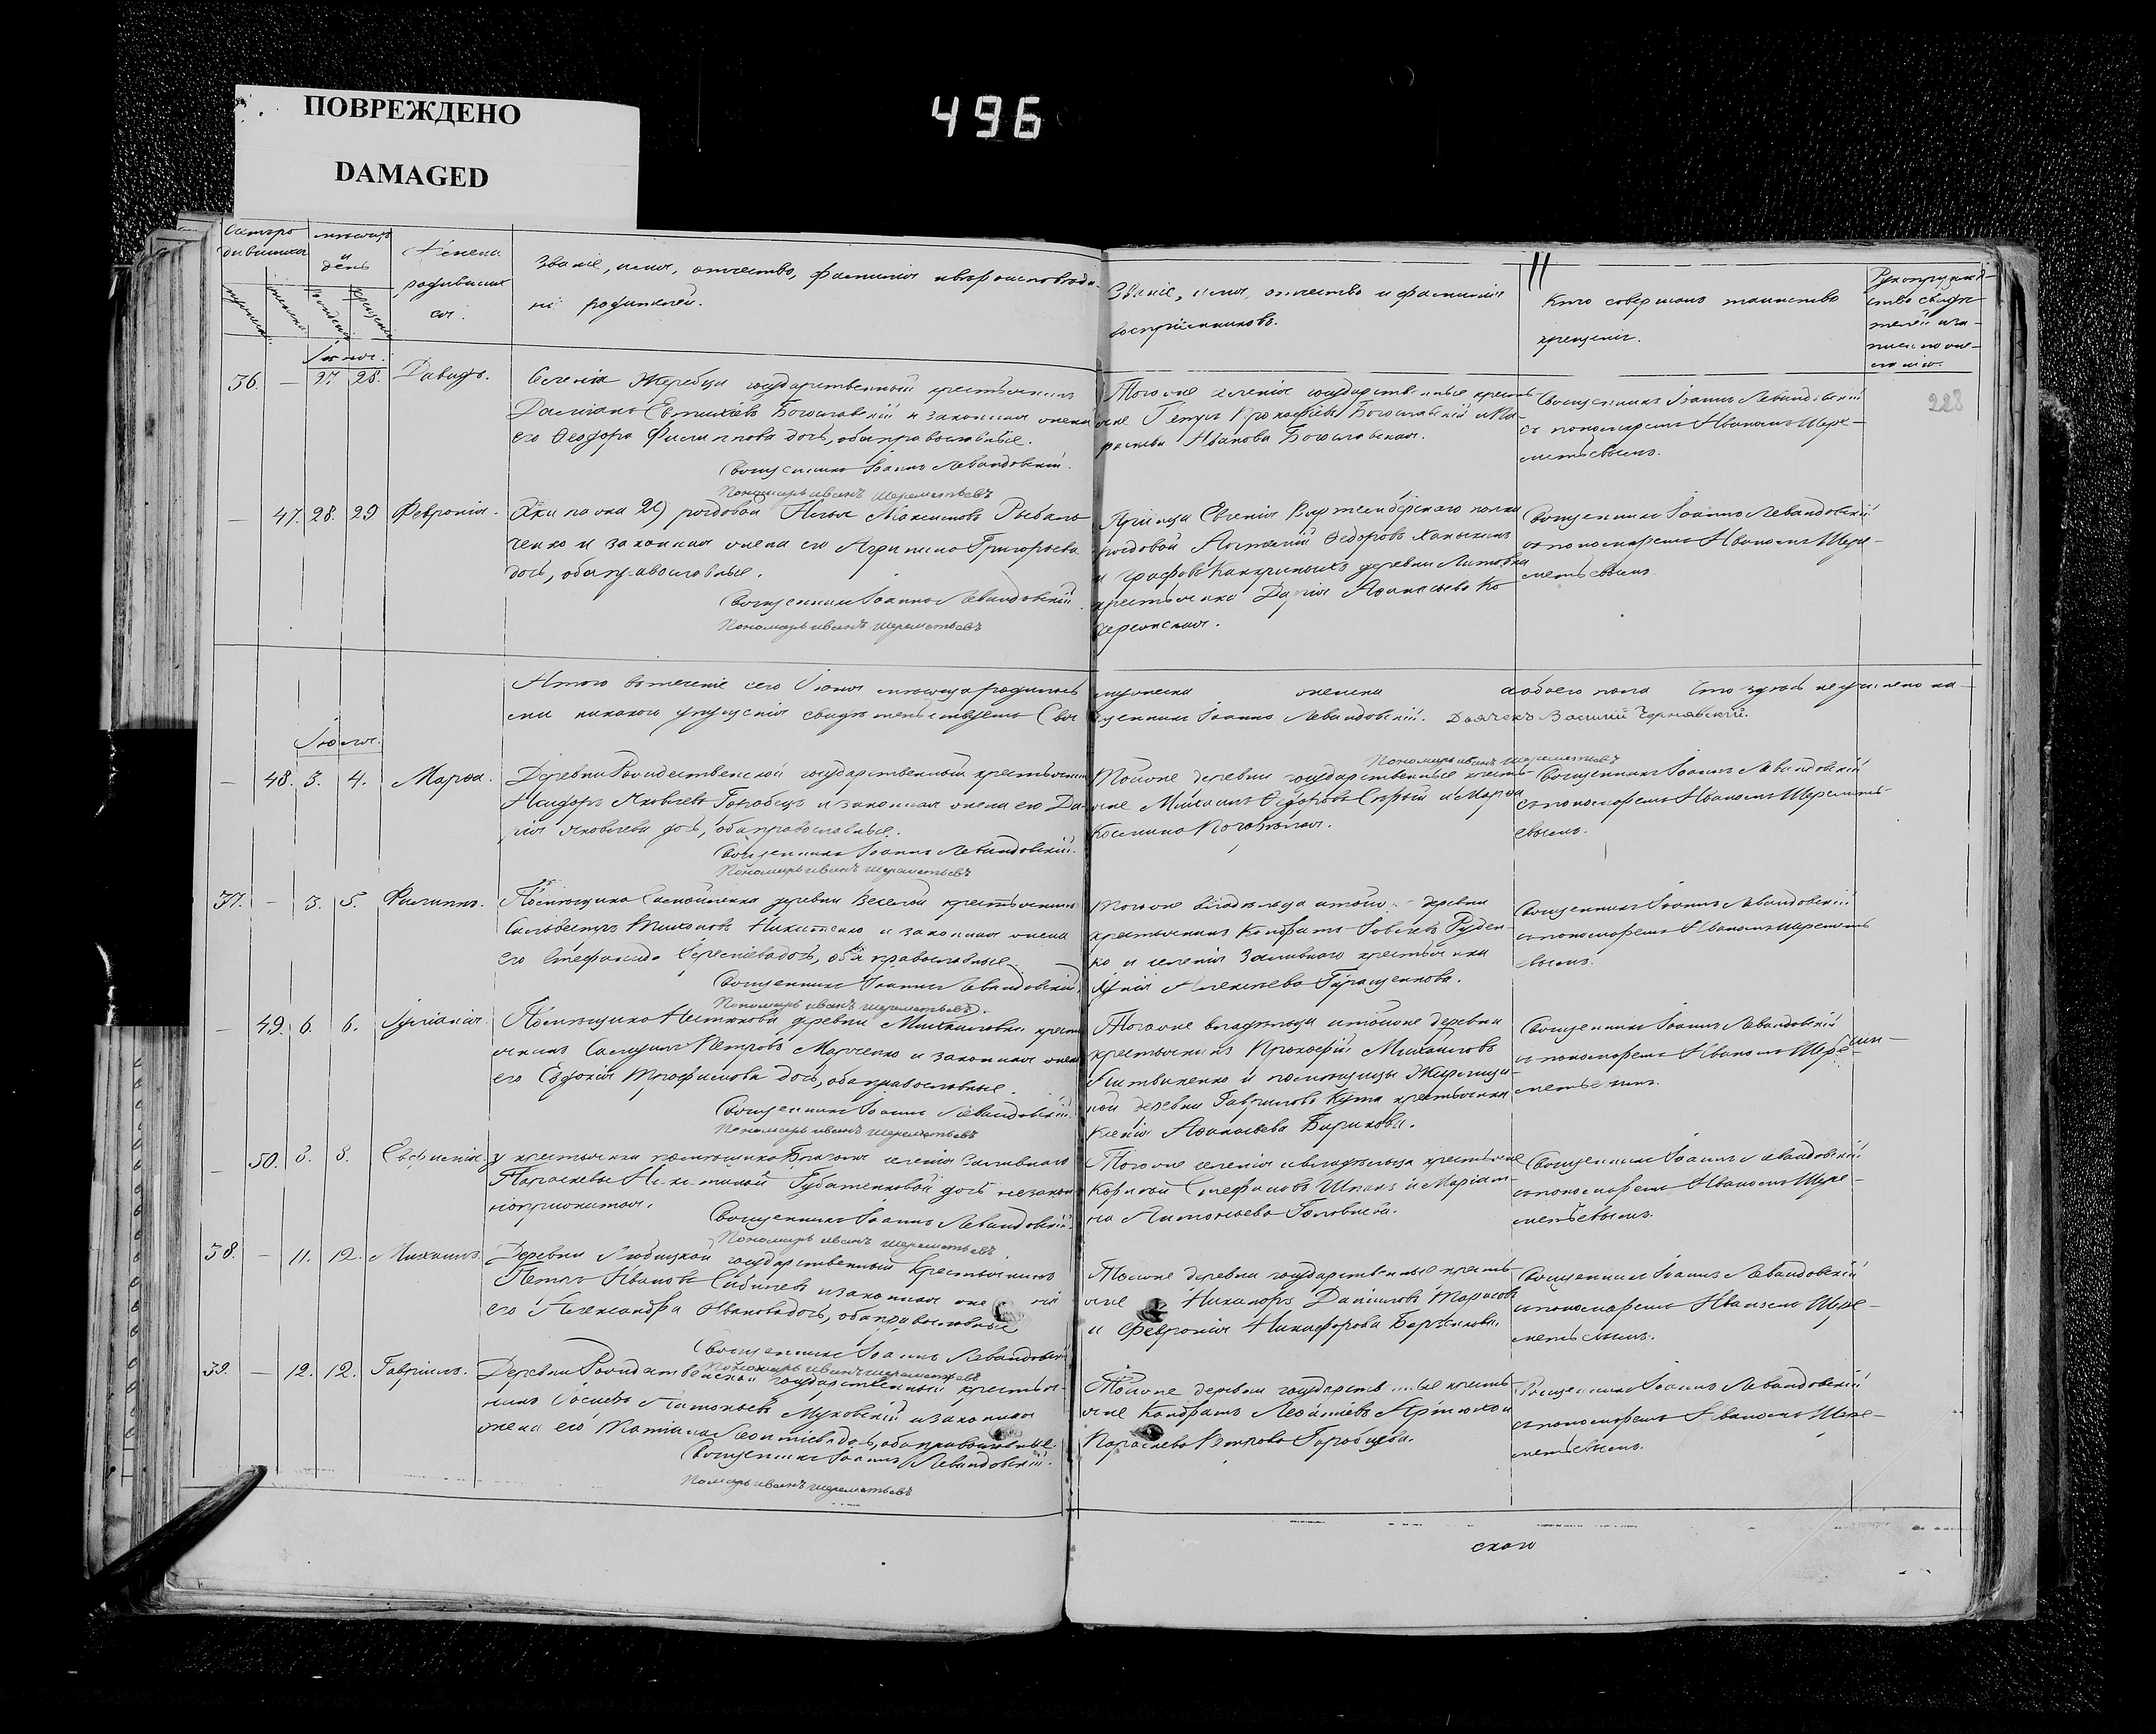 ПОВРЕЖДЕНО
DAMAGED
496
11
228
мѣсяцъ
и
день
Имена
родивших
ся.
Званіе, имя, отчество, фамилія
родителей.
Званіе, имя, отчество и фамилія
воспріемниковъ.
Кто совершалъ таинство
крещенія.
Рукоприклад-
ство свидѣ-
телей
36. — 27. 28. Давидъ.
Селенія Жеребца государственный крестьянинъ
Даміанъ Евтихіевъ Богославскій и законная жена
его Ѳеодора Филиппова дочь, оба православные.
Священникъ Іоаннъ Левандовскій.
Пономарь Иванъ Шереметьевъ
Того же селенія государственные кресть-
яне Петръ Прокофіевъ Богославскій и Па-
раскева Иванова Богославская.
Священникъ Іоаннъ Левандовскій
съ пономаремъ Иваномъ Шере-
метьевымъ.
— 47. 28. 29 Февронія.
рядовой Илья Максимовъ Рыбаль-
ченко и законная жена его Агрипина Григорьева
дочь, оба православные.
Священникъ Іоаннъ Левандовскій.
Пономарь Иванъ Шереметьевъ
Принца Евгенія Виртембергскаго полка
рядовой Ѳедоровъ
и графовъ Канкриныхъ деревни Литовки
крестьянка Дарія Аѳанасьева Ко
Священникъ Іоаннъ Левандовскій
съ пономаремъ Иваномъ Шере-
метьевымъ
Итого въ теченіе сего Іюня мѣсяца родилось
мужеска женска а обоего пола Что здѣсь не учинено ка-
ми никакого упущенія свидѣтельствуемъ Свя
щенникъ Іоаннъ Левандовскій. Дьячекъ Василій Чернявскій.
Пономарь Иванъ Шереметьевъ
Іюля.
— 48. 3. 4. Марѳа.
Деревни Рождественской государственный крестьянинъ
Исидоръ Яковлевъ Горобецъ и законная жена его Да-
рія Яковлева дочь, оба православные.
Священникъ Іоаннъ Левандовскій.
Пономарь Иванъ Шереметьевъ
Той же деревни государственные кресть-
яне Михаилъ Ѳедоровъ Сѣрый и Марѳа
Козмина
Священникъ Іоаннъ Левандовскій
съ пономаремъ Иваномъ Шеремет-
евымъ.
37. — 3. 5. Филиппъ.
Помѣщика деревни Веселой крестьянинъ
Сильвестръ Тихоновъ Никитенко и законная жена
его Стефанида дочь, оба православные.
Священникъ Іоаннъ Левандовскій
Пономарь Иванъ Шереметьевъ.
Того же владѣльца и той же деревни
крестьянинъ Кондратъ Руден-
ко и селенія Заливнаго крестьянка
Алексѣева Геращенкова.
Священникъ Іоаннъ Левандовскій
съ пономаремъ Иваномъ Шереметь
евымъ.
— 49. 6. 6. Іуліанія.
Помѣщика деревни Михайловки кресть
янинъ Самуилъ Петровъ Марченко и законная жена
его Евдокія Трофимова дочь, оба православные.
Священникъ Іоаннъ Левандовскій.
Пономарь Иванъ Шереметьевъ
Того же владѣльца и той же деревни
крестьянинъ Прокофій Михайловъ
Литвиненко и помѣщицы
ной деревни Гаврилова Кута крестьянка
Ксенія Аѳанасьева Бирюкова.
Священникъ Іоаннъ Левандовскій
съ пономаремъ Иваномъ Шере-
— 50. 8. Евфимія.
У крестьянки помѣщика селенія Заливнаго
Параскевы Губатенковой дочь незакон
норожденная.
Священникъ Іоаннъ Левандовскій.
Пономарь Иванъ Шереметьевъ
Того же селенія и владѣльца крестьяне
Корнилій Стефановъ Шпакъ и Маріам-
на Антоньева
Священникъ Іоаннъ Левандовскій
съ пономаремъ Иваномъ Шере-
метьевымъ.
38. — 11. 12. Михаилъ.
Деревни Любицкой государственный крестьянинъ
Петръ Ивановъ и законная жена
его Александра Иванова дочь, оба православные
Священникъ Іоаннъ Левандовскій
Пономарь Иванъ Шереметьевъ
Той же деревни государственные кресть-
яне Никаноръ Даніиловъ Тарасовъ
и Февронія Никифорова
Священникъ Іоаннъ Левандовскій
съ пономаремъ Иваномъ Шере-
метьевымъ.
39. — 12. 12. Гавріилъ.
Деревни Рождественской государственный крестья-
нинъ Антоньевъ Муковскій и законная
жена его Татіана Леонтіева дочь, оба православные.
Священникъ Іоаннъ Левандовскій.
Помарь Иванъ Шереметьевъ
Той же деревни государственные кресть
яне Кондратъ Леонтіевъ
Параскева Петрова Горобцева.
Священникъ Іоаннъ Левандовскій
съ пономаремъ Иваномъ Шере-
метьевымъ.
скаго